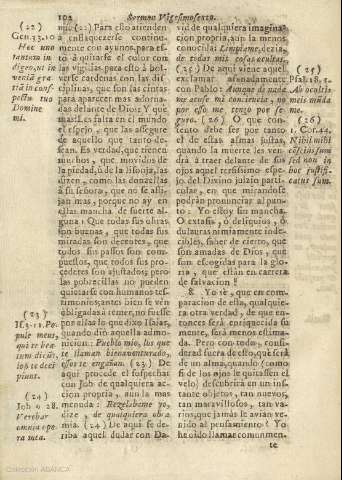 102 Sermon Vigesimosexto.
(22)
Gen. 33. 10
Hoc uno
tantum in
digeo, ut in
veniã gratiã in conspectu tuo
Domine
mi.
(23)
Is. 3. 12. Popule meus,
qui te beatum dicũt,
ipsi te decipiunt.
(24)
Job 9. 28.
Verebar
omnia opera mea.
mi: (22) Para esto atienden
à enflaquecerse continuamente con ayunos, para esto à quitarse el color con
las vigilias, para esto à bolverse cardenas con las disciplinas, que son las cintas
para aparecer mas adornadas delante de Dios: Y què
mas? Les falta en el mundo
el espejo, que las assegure
de aquello que tanto desean. Es verdad, que tienen
muchos, que movidos de
la piedad, ù de la lisonja, las
dizen, como las donzellas
à su señora, que no se aflijan mas, porque no ay en
ellas mancha de suerte alguna: Que todas sus obras
son buenas, que todas sus
miradas son decentes, que
todos sus passos son compuestos, que todos sus procederes son ajustados; pero
las pobrecillas no pueden
quietarse con humanos testimonios; antes bien se vèn
obligadas à temer, no fuesse
por ellas lo que dixo Isaias,
quando diò aquella admonicion: Pueblo mio, los que
te llaman bienaventurado,
essos te engañan. (23) De
aqui procede el sospechar
con Job de qualquiera accion propria, aun la mas
menuda: Rezelabame yo,
dize, de qualquiera obra
mia. (24) De aqui se deriba aquel dudar con David de qualquiera imaginacion propria, aun la menos
conocida: Limpiame, dezia,
de todas mis cosas ocultas.
(25) De aqui viene aquel
exclamar afanadamente
con Pablo: Aunque de nada
me acuse mi conciencia, no
por esso me tengo por seguro. (26) O que contento debe ser por tanto
el de estas almas justas,
quando la muerte les vendrà à traer delante de sus
ojos aquel tersissimo espejo del Divino juizio particular, en que mirandose
podràn pronunciar al punto: Yo estoy sin mancha.
O extasis, ò deliquios, ò
dulçuras nimiamente indecibles, saber de cierto, que
son amadas de Dios, que
son escogidas para la gloria, que estàn en carrera
de salvacion!
8. Yo sè, que en comparacion de esta, qualquiera otra verdad, de que entonces serà enriquecida su
mente, serà menos estimada. Pero con todo, considerad fuera de esto, què serà
de un alma, quando (como
si de los ojos le quitassen el
velo) descubrirà en un instante objetos, tan nuevos,
tan maravillosos, tan varios, que jamàs le avian venido al pensamiento? Yo
he oido llamar commen-
te
(25)
Psal. 18. 13.
Ab occultis
meis mũda
me.
(26)
1. Cor. 4. 4.
Nihil mihi
cõscius sum
sed non in
hoc justificatus sum.
Colección ABANCA